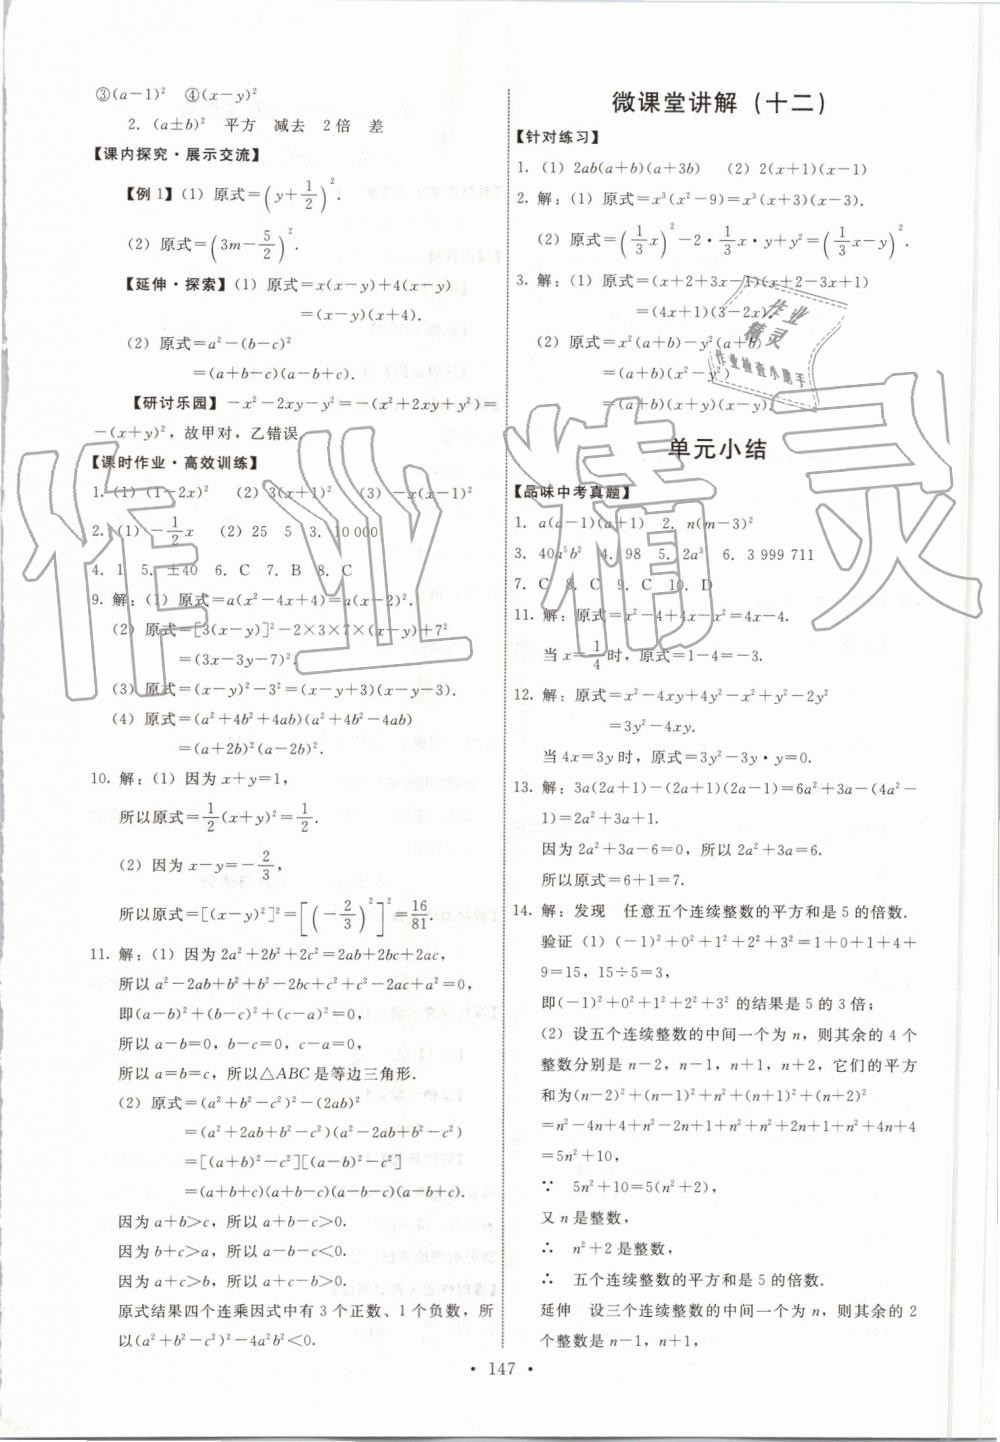 ③(a－1)² ④(x－y)²
2. (a±b)² 平方 减去 2倍 差
【课内探究·展示交流】
【例1】(1) 原式＝(y＋1/2)².
(2) 原式＝(3m－5/2)².
【延伸·探索】(1) 原式＝x(x－y)＋4(x－y)
＝(x－y)(x＋4).
(2) 原式＝a²－(b－c)²
＝(a＋b－c)(a－b＋c).
【研讨乐园】－x²－2xy－y²＝－(x²＋2xy＋y²)＝
－(x＋y)²，故甲对，乙错误.
【课时作业·高效训练】
1. (1) (1－2x)² (2) 3(x＋1)² (3) －x(x－1)²
2. (1) －1/2x (2) 25 5 3. 10 000
4. 1 5. ±40 6. C 7. B 8. C
9. 解：(1) 原式＝a(x²－4x＋4)＝a(x－2)².
(2) 原式＝[3(x－y)]²－2×3×7×(x－y)＋7²
＝(3x－3y－7)².
(3) 原式＝(x－y)²－3²＝(x－y＋3)(x－y－3).
(4) 原式＝(a²＋4b²＋4ab)(a²＋4b²－4ab)
＝(a＋2b)²(a－2b)².
10. 解：(1) 因为x＋y＝1，
所以原式＝1/2(x＋y)²＝1/2.
(2) 因为x－y＝－2/3，
所以原式＝[(x－y)²]²＝[(－2/3)²]²＝16/81.
11. 解：(1) 因为2a²＋2b²＋2c²＝2ab＋2bc＋2ac，
所以a²－2ab＋b²＋b²－2bc＋c²＋c²－2ac＋a²＝0，
即(a－b)²＋(b－c)²＋(c－a)²＝0，
所以a－b＝0，b－c＝0，c－a＝0，
所以a＝b＝c，所以△ABC是等边三角形.
(2) 原式＝(a²＋b²－c²)²－(2ab)²
＝(a²＋2ab＋b²－c²)(a²－2ab＋b²－c²)
＝[(a＋b)²－c²][(a－b)²－c²]
＝(a＋b＋c)(a＋b－c)(a－b－c)(a－b＋c).
因为a＋b＞c，所以a＋b－c＞0.
因为b＋c＞a，所以a－b－c＜0.
因为a＋c＞b，所以a＋c－b＞0.
原式结果四个连乘因式中有3个正数、1个负数，所
以(a²＋b²－c²)²－4a²b²＜0.
微课堂讲解（十二）
【针对练习】
1. (1) 2ab(a＋b)(a＋3b) (2) 2(x＋1)(x－1)
2. 解：(1) 原式＝x³(x²－9)＝x³(x＋3)(x－3).
(2) 原式＝(1/3x)²－2·1/3x·y＋y²＝(1/3x－y)².
3. 解：(1) 原式＝(x＋2＋3x－1)(x＋2－3x＋1)
＝(4x＋1)(3－2x).
(2) 原式＝x²(a＋b)－y²(a＋b)
＝(a＋b)(x²－y²)
＝(a＋b)(x＋y)(x－y).
单元小结
【品味中考真题】
1. a(a－1)(a＋1) 2. n(m－3)²
3. 40a⁵b² 4. 98 5. 2a³ 6. 3 999 711
7. C 8. C 9. C 10. D
11. 解：原式＝x²－4＋4x－x²＝4x－4.
当x＝1/4时，原式＝1－4＝－3.
12. 解：原式＝x²－4xy＋4y²－x²＋y²－2y²
＝3y²－4xy.
当4x＝3y时，原式＝3y²－3y·y＝0.
13. 解：3a(2a＋1)－(2a＋1)(2a－1)＝6a²＋3a－(4a²－
1)＝2a²＋3a＋1.
因为2a²＋3a－6＝0，所以2a²＋3a＝6.
所以原式＝6＋1＝7.
14. 解：发现 任意五个连续整数的平方和是5的倍数.
验证 (1) (－1)²＋0²＋1²＋2²＋3²＝1＋0＋1＋4＋
9＝15，15÷5＝3，
即(－1)²＋0²＋1²＋2²＋3²的结果是5的3倍；
(2) 设五个连续整数的中间一个为n，则其余的4个
整数分别是n－2，n－1，n＋1，n＋2，它们的平方
和为(n－2)²＋(n－1)²＋n²＋(n＋1)²＋(n＋2)²
＝n²－4n＋4＋n²－2n＋1＋n²＋n²＋2n＋1＋n²＋4n＋4
＝5n²＋10，
∵ 5n²＋10＝5(n²＋2)，
又n是整数，
∴ n²＋2是整数，
∴ 五个连续整数的平方和是5的倍数.
延伸 设三个连续整数的中间一个为n，则其余的2
个整数是n－1，n＋1，
·147·
作业精灵
作业
精灵
作业检查小助手